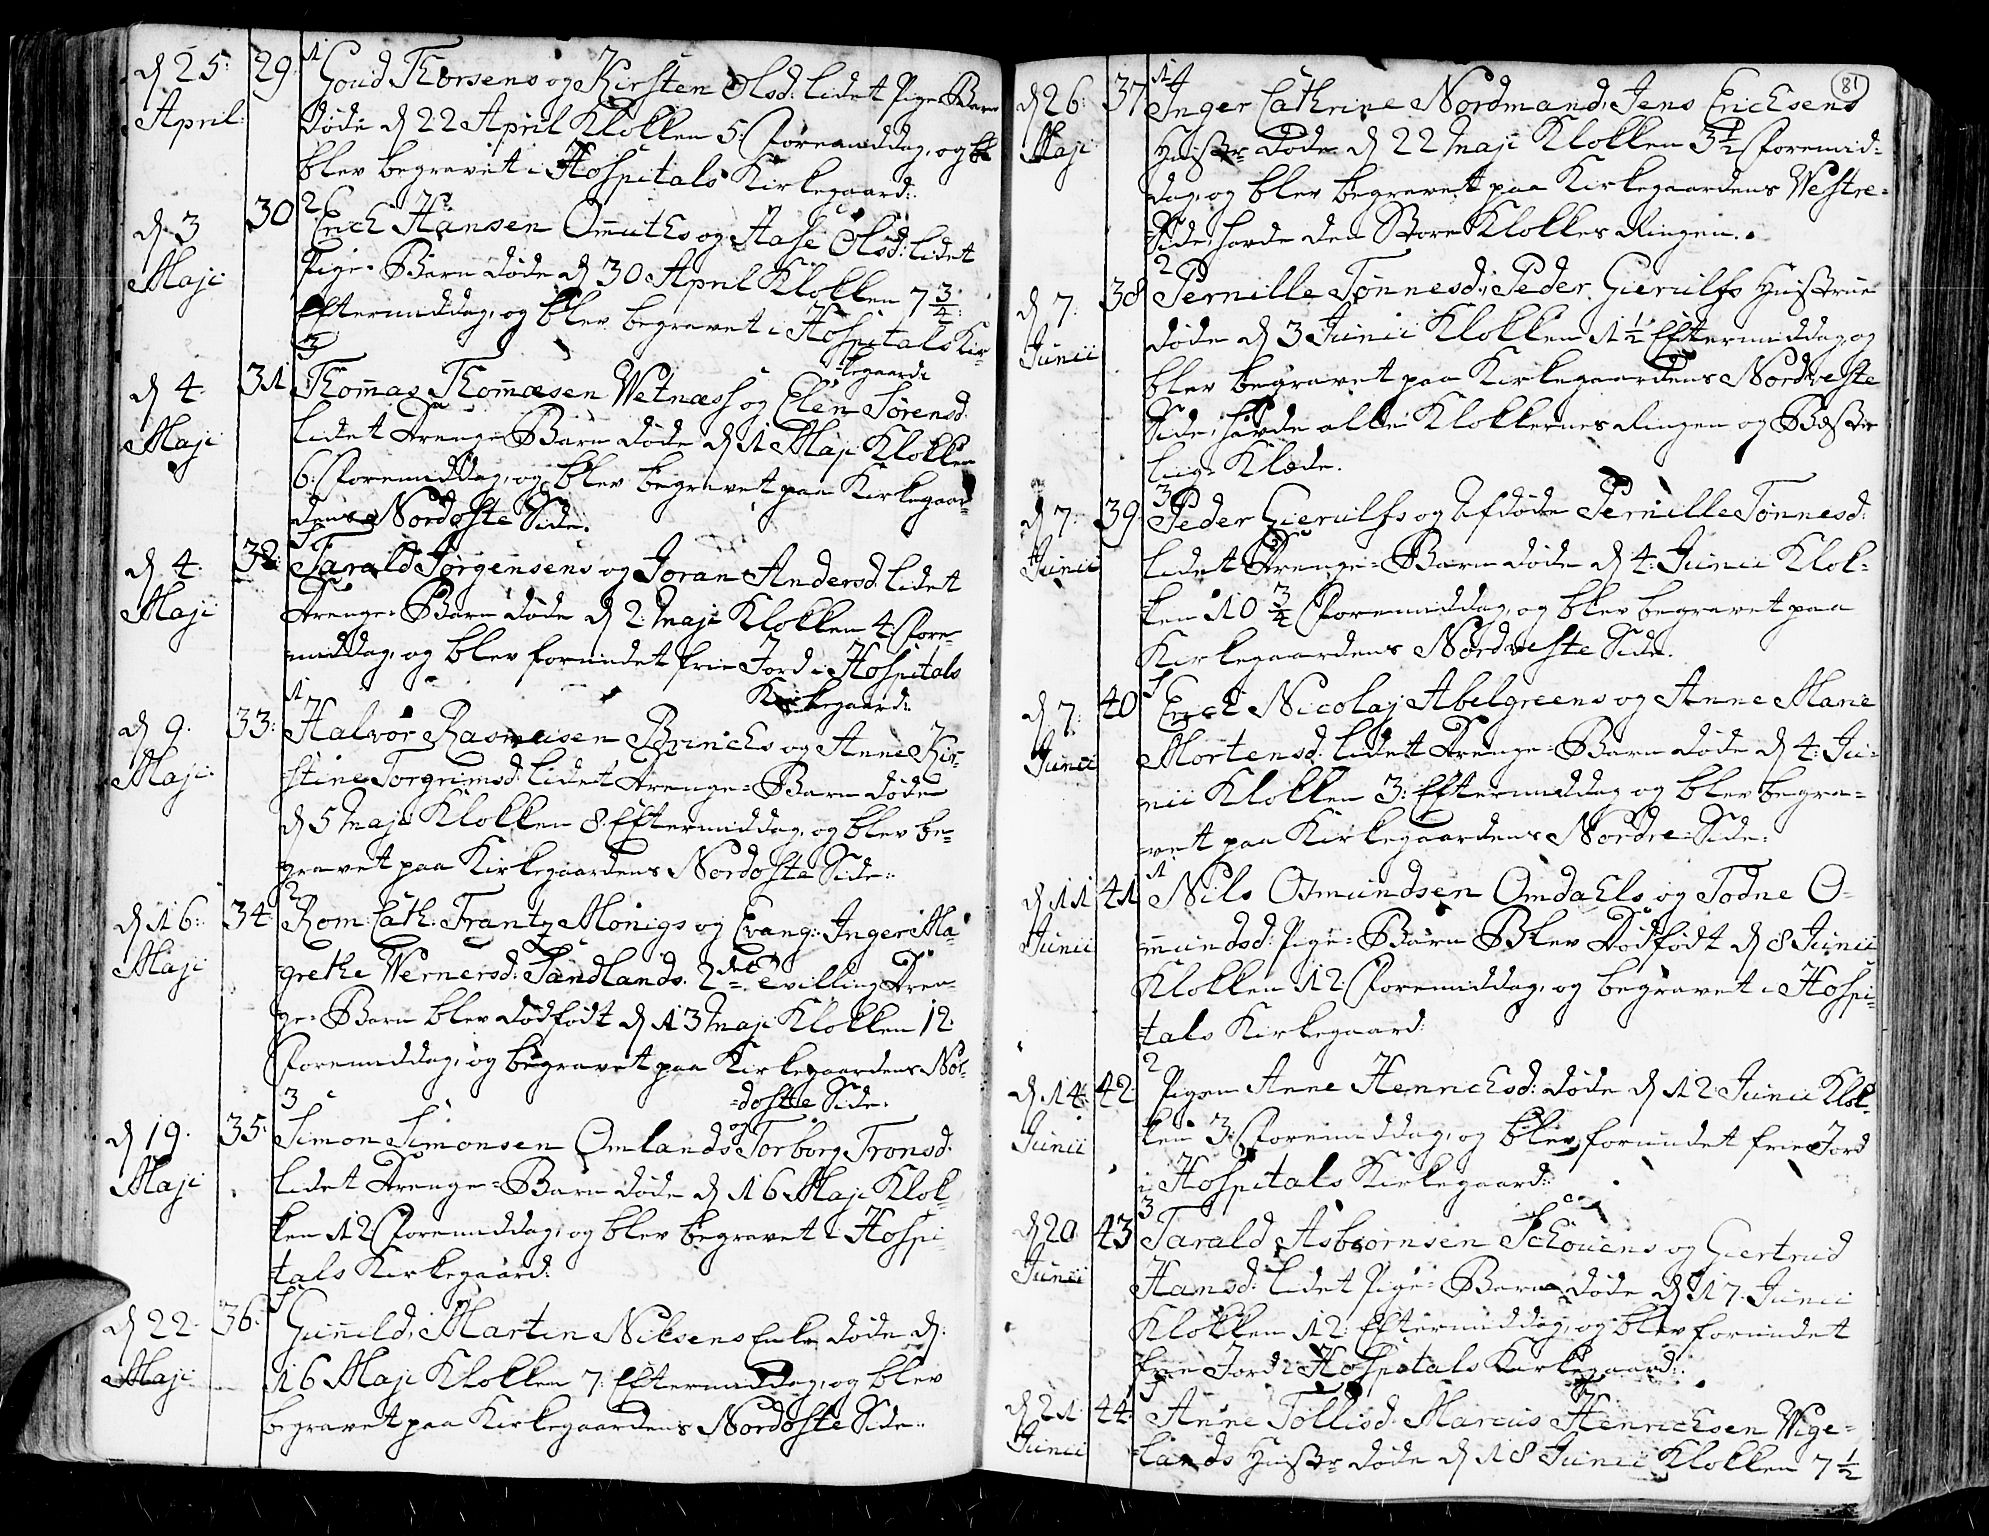 d 25: April 29. 1
Goud Thorsens og Kirsten Olsd: lidet Pige-Barn
døde d 22 April Klokken 5: Foremiddag, og
blev begravet i Hospitals Kirkegaard:
d. 3 Maji 30 2
Erich Hansen Omuths og Aase Olsd: lidet
Pige-Barn døde d 30 April Klokken 7 3/4
Eftermiddag, og blev begravet i Hospitals Kir-
kegaard:
d 4. Maji 31 3
Thomas Thomæsen Wetnæss og Elen Sørensd.
lidet Drenge-Barn døde d 1 Maji Klokken
6: Foremiddag, og blev begravet paa Kirkegaar-
dens Nordoste Side.
d 4. Maji 32:
Tarald Jørgensens og Joran Andersd. lidet
Drenge-Barn døde d 2: Maji Klokken 4: Fore-
middag, og blev forundet frie Jord i Hospitals
Kirkegaard:
d 9. Maji 33: 1
Halvor Rasmusen Brincks og Anne Kir-
stine Torgrimsd: lidet Drenge-Barn døde
d 5 Maji Klokken 8. Eftermiddag, og blev be-
gravet paa Kirkegaardens Nordoste Side:
d 16: Maji 34 2
Rom: Cath: Frantz Mönigs og Evang: Inger Ma-
grethe Wernersd: Sandlands 2det Tvilling Dren-
ge-Barn blev dødfødt d 13 Maji Klokken 12:
Foremiddag, og begravet paa Kirkegaardens Nor-
doste Side.
d 19. Maji 35: 3
Simon Simonsen Omlands og Torborg Tronsd.
lidet Drenge-Barn døde d 16 Maji Klok-
ken 12 Foremiddag, og blev begravet i Hospi-
tals Kirkegaard:
d 22. Maji 36.
Gunild, Martin Nilsens Enke døde d:
16 Maji Klokken 7: Eftermiddag, og blev
begravet paa Kirkegaardens Nordoste Side:
81
d 26: Maji 37 1
Inger Cathrine Nordmand, Jens Ericksens
Hustr: døde d 22 Maji Klokken 3 1/2 Foremid-
dag, og blev begravet paa Kirkegaardens Vestre-
Side, havde den Store Klokkes Ringen.
d 7: Junii 38 2
Pernille Tønnesd: Peder Gierulfs Hustrue
døde d 3 Junii Klokken 1 1/2 Eftermiddag og
blev begravet paa Kirkegaardens Nordveste
Side, havde alle Klokkernes Ringen og Beste
Liig-Klæde.
d 7: Junii 39 3
Peder Gierulfs og Afdøde Pernille Tønnesd:
lidet Drenge-Barn døde d 4: Junii Klok-
ken 10 3/4 Foremiddag, og blev begravet paa
Kirkegaardens Nordveste Side.
d 7: Junii 40
Erich Nicolaj Abelgreens og Anne Marie
Mortensd: lidet Drenge-Barn døde d 4: Ju-
nii Klokken 3: Eftermiddag og blev begra-
vet paa Kirkegaardens Nordre Side:
d 11 Junii 41 1
Nils Osmundsen Omdahls og Todne O-
mundsd: Pige-Barn Blev Dødfødt d 8 Junii
Klokken 12: Foremiddag, og begravet i Hospi-
tals Kirkegaard:
d 14: Junii 42: 2
Pigen Anne Henrichsd: døde d 12 Junii Klok-
ken 3: Foremiddag, og blev forundet frie Jord
i Hospitals Kirkegaard:
d 20 Junii 43 3
Tarald Asbiørnsen Schouens og Giertrud
Hansd: lidet Pige-Barn døde d 17. Junii
Klokken 12: Eftermiddag, og blev forundet
frie Jord i Hospitals Kirkegaard:
d 21. Junii 44
Anne Tollisd. Marcus Henrichsen Wige-
lands Hustr: døde d 18 Junii Klokken 7 1/2